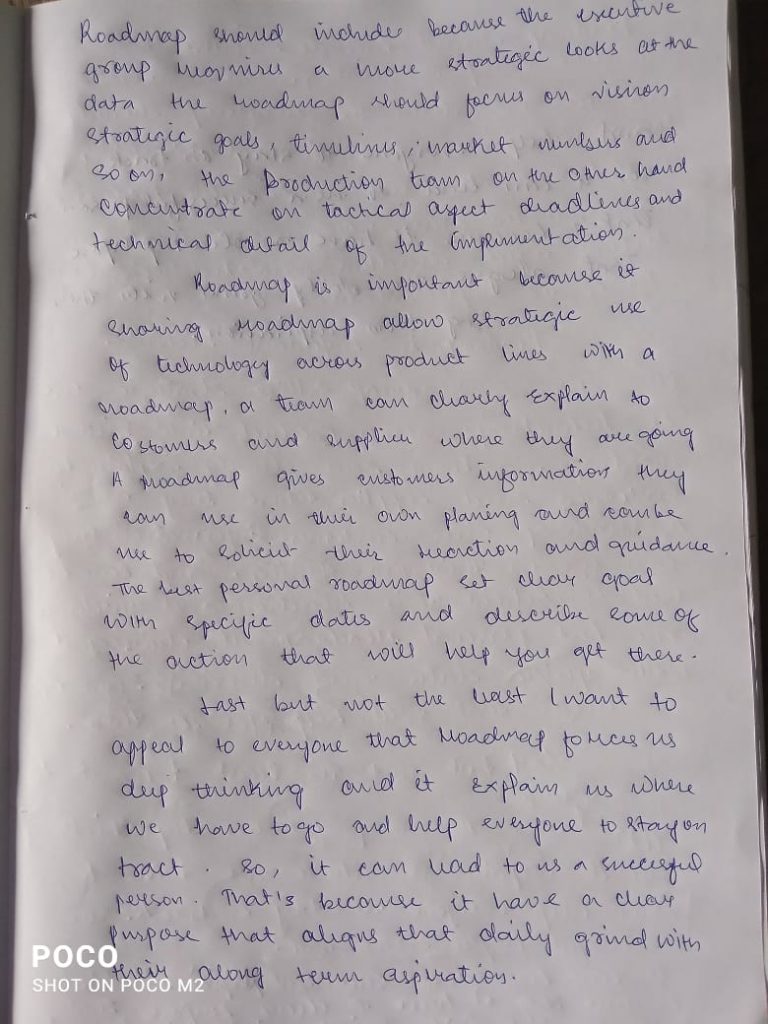 Roadmap should include because the executive
group requires a more strategic looks at the
data the roadmap should focus on vision
strategic goals, timelines, market numbers and
so on, the production team on the other hand
concentrate on tactical aspect deadlines and
technical detail of the implementation.
Roadmap is important because it
sharing roadmap allow strategic use
of technology across product lines with a
roadmap, a team can clearly explain to
costomers and supplier where they are going
A roadmap gives customers information they
can use in their own planing and can be
use to solicit their reaction and guidance.
The best personal roadmap set clear goal
with specific dates and describe some of
the action that will help you get there.
Last but not the least I want to
appeal to everyone that roadmap forces us
deep thinking and it explain us where
we have to go and help everyone to stay on
tract. So, it can lead to us a successful
person. That's because it have a clear
purpose that aligns that daily grind with
their along term aspiration.
POCO
SHOT ON POCO M2